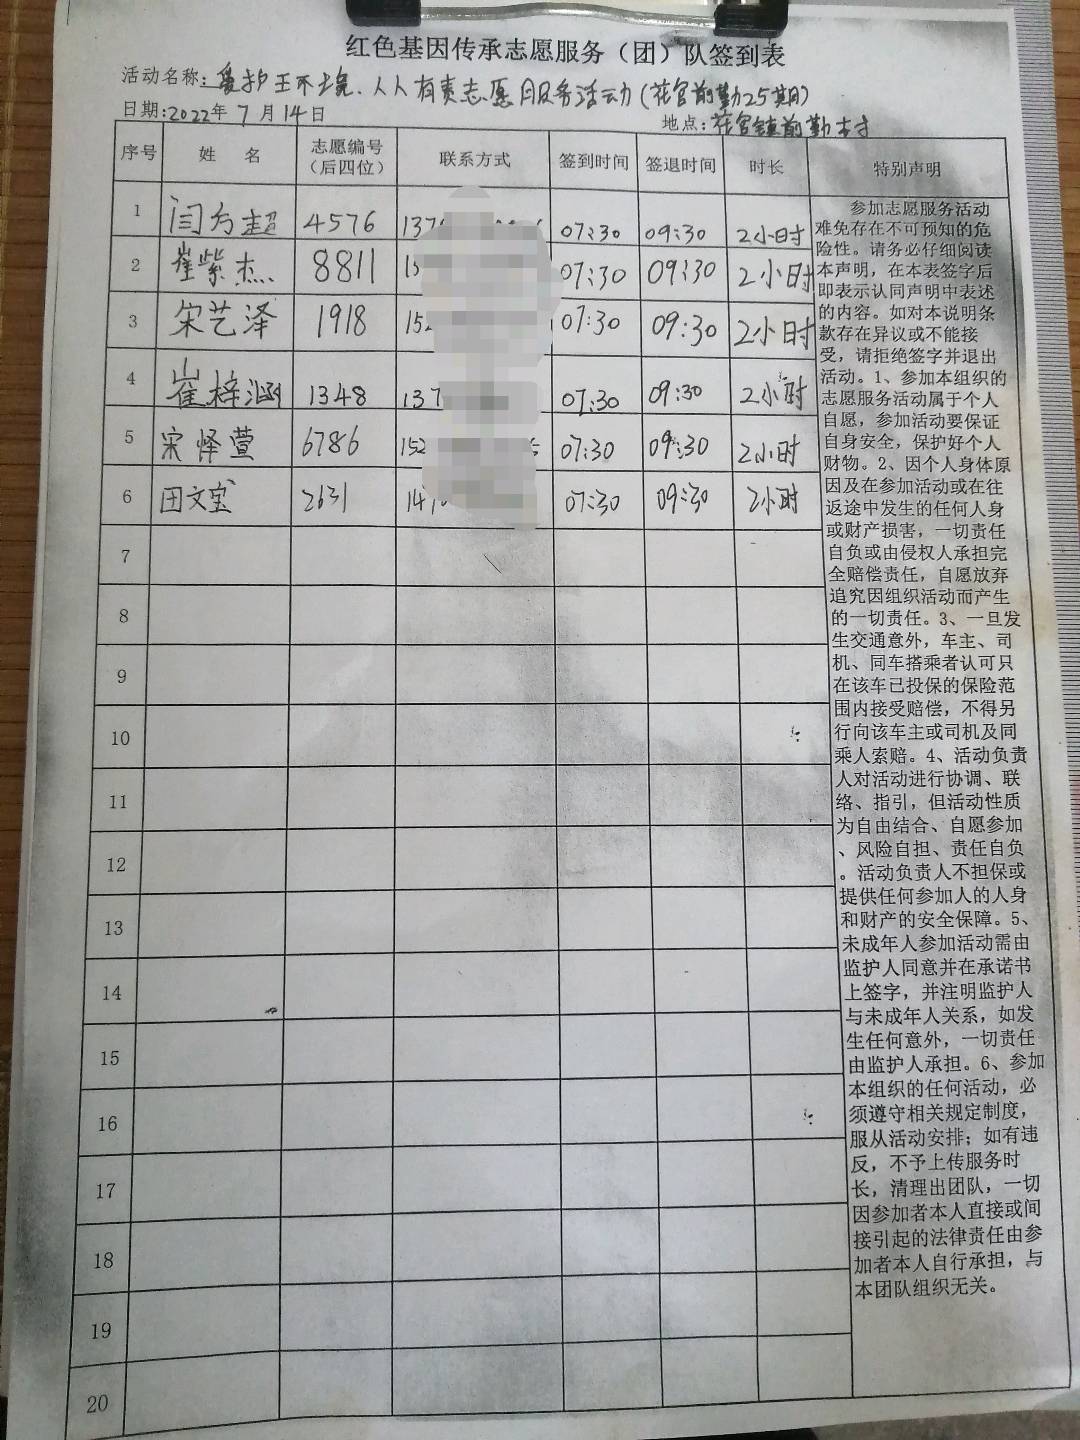 红色基因传承志愿服务（团）队签到表
活动名称:爱护王不境、人人有责志愿服务活动(花官前勤25期)
日期:2022年 7 月 14 日 地点:花官镇前勤村
序号 姓 名 志愿编号（后四位） 联系方式 签到时间 签退时间 时长 特别声明
1 闫方超 4576 137 07:30 09:30 2小时
2 崔紫杰 8811 15 07:30 09:30 2小时
3 宋艺泽 1918 152 07:30 09:30 2小时
4 崔梓涵 1348 137 07:30 09:30 2小时
5 宋怿萱 6786 152 07:30 09:30 2小时
6 田文宝 2631 147 07:30 09:30 2小时
7
8
9
10
11
12
13
14
15
16
17
18
19
20
参加志愿服务活动
难免存在不可预知的危
险性。请务必仔细阅读
本声明，在本表签字后
即表示认同声明中表述
的内容。如对本说明条
款存在异议或不能接
受，请拒绝签字并退出
活动。1、参加本组织的
志愿服务活动属于个人
自愿，参加活动要保证
自身安全，保护好个人
财物。2、因个人身体原
因及在参加活动或在往
返途中发生的任何人身
或财产损害，一切责任
自负或由侵权人承担完
全赔偿责任，自愿放弃
追究因组织活动而产生
的一切责任。3、一旦发
生交通意外，车主、司
机、同车搭乘者认可只
在该车已投保的保险范
围内接受赔偿，不得另
行向该车主或司机及同
乘人索赔。4、活动负责
人对活动进行协调、联
络、指引，但活动性质
为自由结合、自愿参加
、风险自担、责任自负
。活动负责人不担保或
提供任何参加人的人身
和财产的安全保障。5、
未成年人参加活动需由
监护人同意并在承诺书
上签字，并注明监护人
与未成年人关系，如发
生任何意外，一切责任
由监护人承担。6、参加
本组织的任何活动，必
须遵守相关规定制度，
服从活动安排；如有违
反，不予上传服务时
长，清理出团队，一切
因参加者本人直接或间
接引起的法律责任由参
加者本人自行承担，与
本团队组织无关。